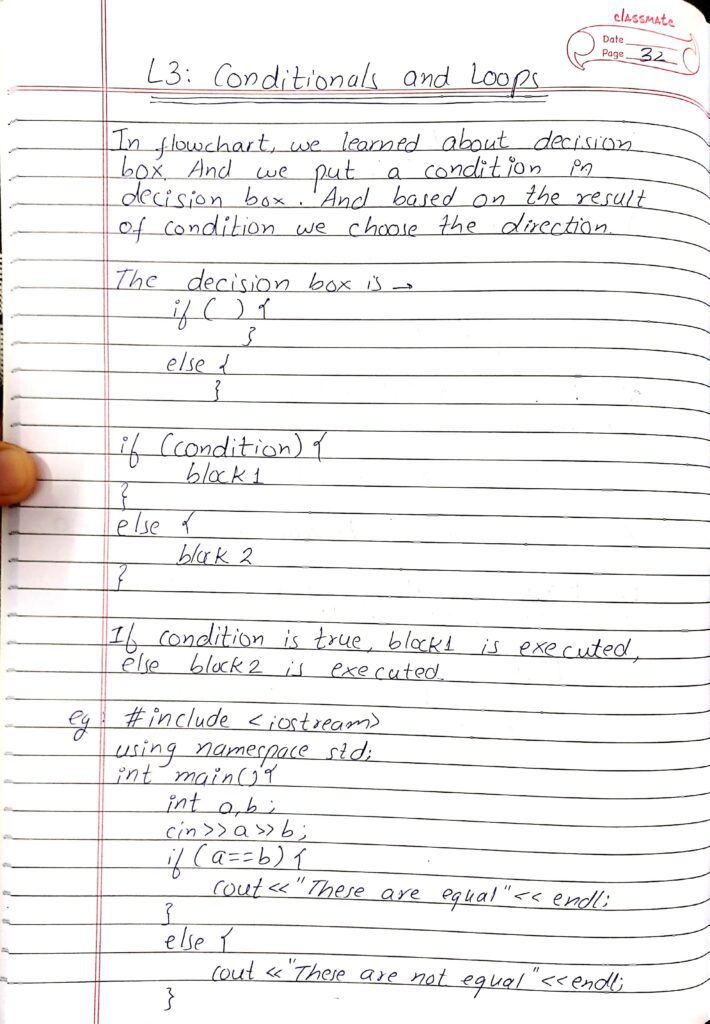 classmate
Date
Page 32
L3: Conditionals and Loops
In flowchart, we learned about decision
box. And we put a condition in
decision box. And based on the result
of condition we choose the direction.
The decision box is →
if ( ) {
}
else {
}
if (condition) {
block1
}
else {
block 2
}
If condition is true, block1 is executed,
else block2 is executed.
eg: #include <iostream>
using namespace std;
int main(){
int a,b;
cin>>a>>b;
if (a==b) {
cout<<"These are equal"<<endl;
}
else {
cout<<"These are not equal"<<endl;
}